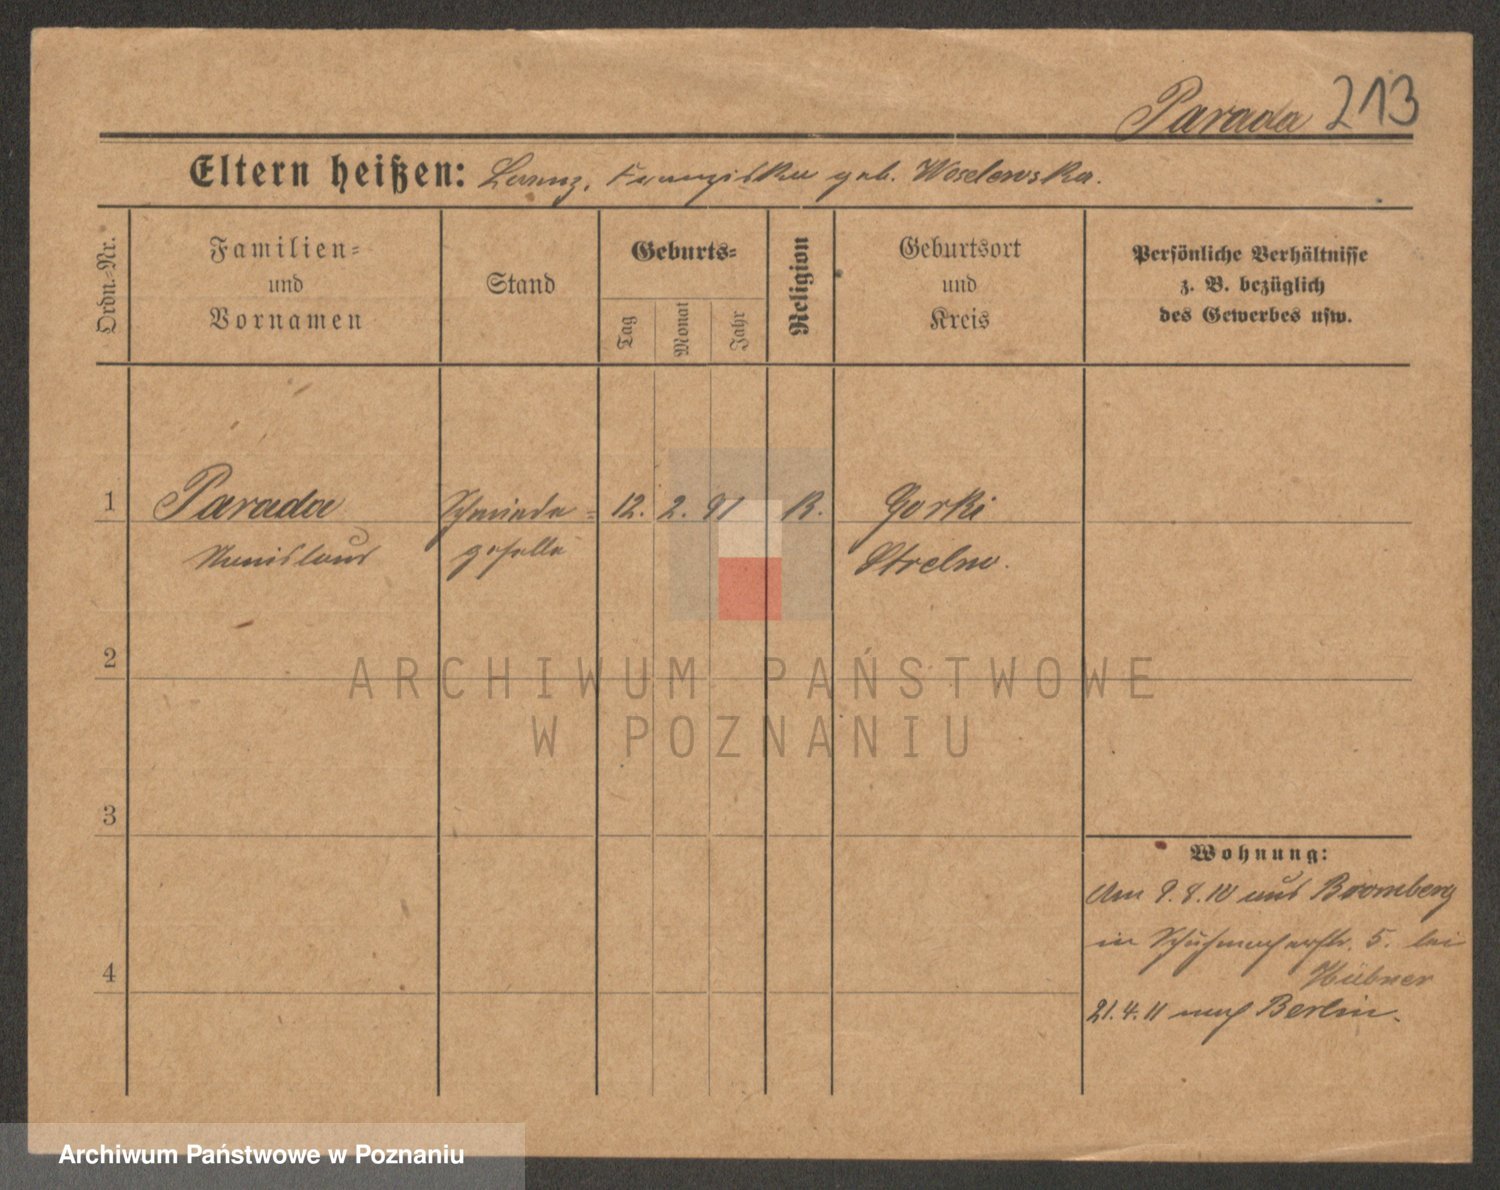 Parada 213
Eltern heißen: Lorenz, Franziska geb. Woselewska.
Ordn.-Nr.
Familien-
und
Vornamen
Stand
Geburts-
Tag
Monat
Jahr
Religion
Geburtsort
und
Kreis
Persönliche Verhältnisse
z. B. bezüglich
des Gewerbes usw.
1 Parada Schmiede- 12. 2. 91 K. Gorki
geselle Strelno.
2
3
4
Wohnung:
Am 9.8.10 aus Bromberg
in Schuhmacherstr. 5. bei
Hübner
21.4.11 nach Berlin.
ARCHIWUM PAŃSTWOWE
W POZNANIU
Archiwum Państwowe w Poznaniu